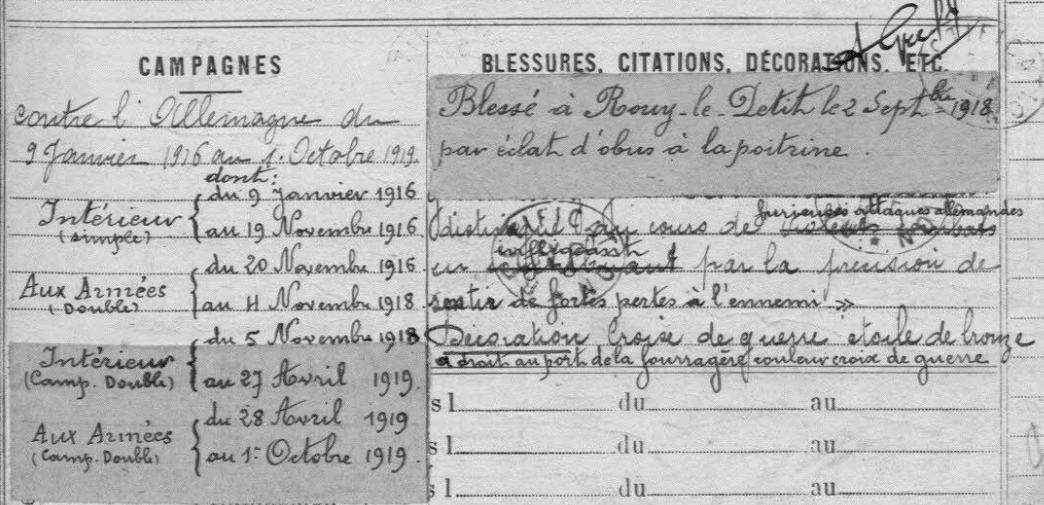 CAMPAGNES
contre l'Allemagne du
9 Janvier 1916 au 1. Octobre 1919.
dont:
Intérieur (simple) { du 9 Janvier 1916
au 19 Novembre 1916
Aux Armées (Double) { du 20 Novembre 1916
au 4 Novembre 1918
Intérieur (Camp. Double) { du 5 Novembre 1918
au 27 Avril 1919.
Aux Armées (Camp. Double) { du 28 Avril 1919
au 1: Octobre 1919
BLESSURES, CITATIONS, DÉCORATIONS, ETC.
Blessé à Rouy-le-Petit le 2 Septbre 1918
par éclat d'obus à la poitrine.
au cours de furieuses attaques allemandes
en infligeant par la précision de
de fortes pertes à l'ennemi »
Décoration Croix de guerre etoile de bronze
a droit au port de la fourragère couleur croix de guerre
s l. du au
s l. du au
s l. du au